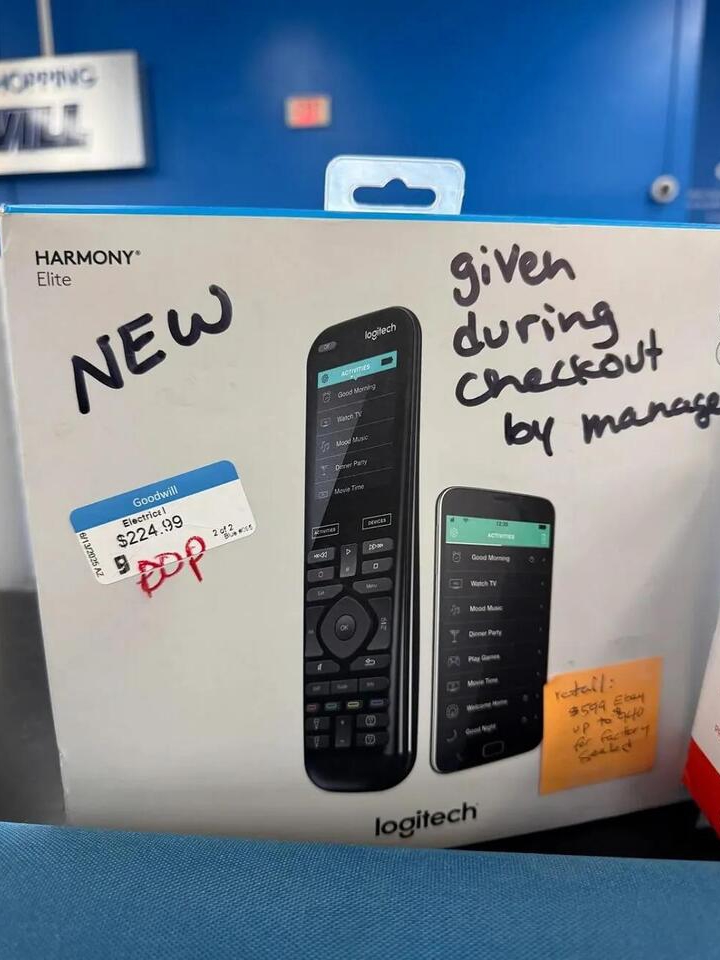 HARMONY®
Elite
NEW
given
during
checkout
by manage
Goodwill
Electrical
$224.99
2 of 2
6/13/2025 AZ
DOP
logitech
ACTIVITIES
Good Morning
Watch TV
Mood Music
Dinner Party
Movie Time
ACTIVITIES
DEVICES
Menu
OK
ACTIVITIES
Good Morning
Watch TV
Mood Music
Dinner Party
Play Games
Movie Time
Welcome Home
Good Night
retail:
$599 Ebay
up to
for factory
Sealed
logitech